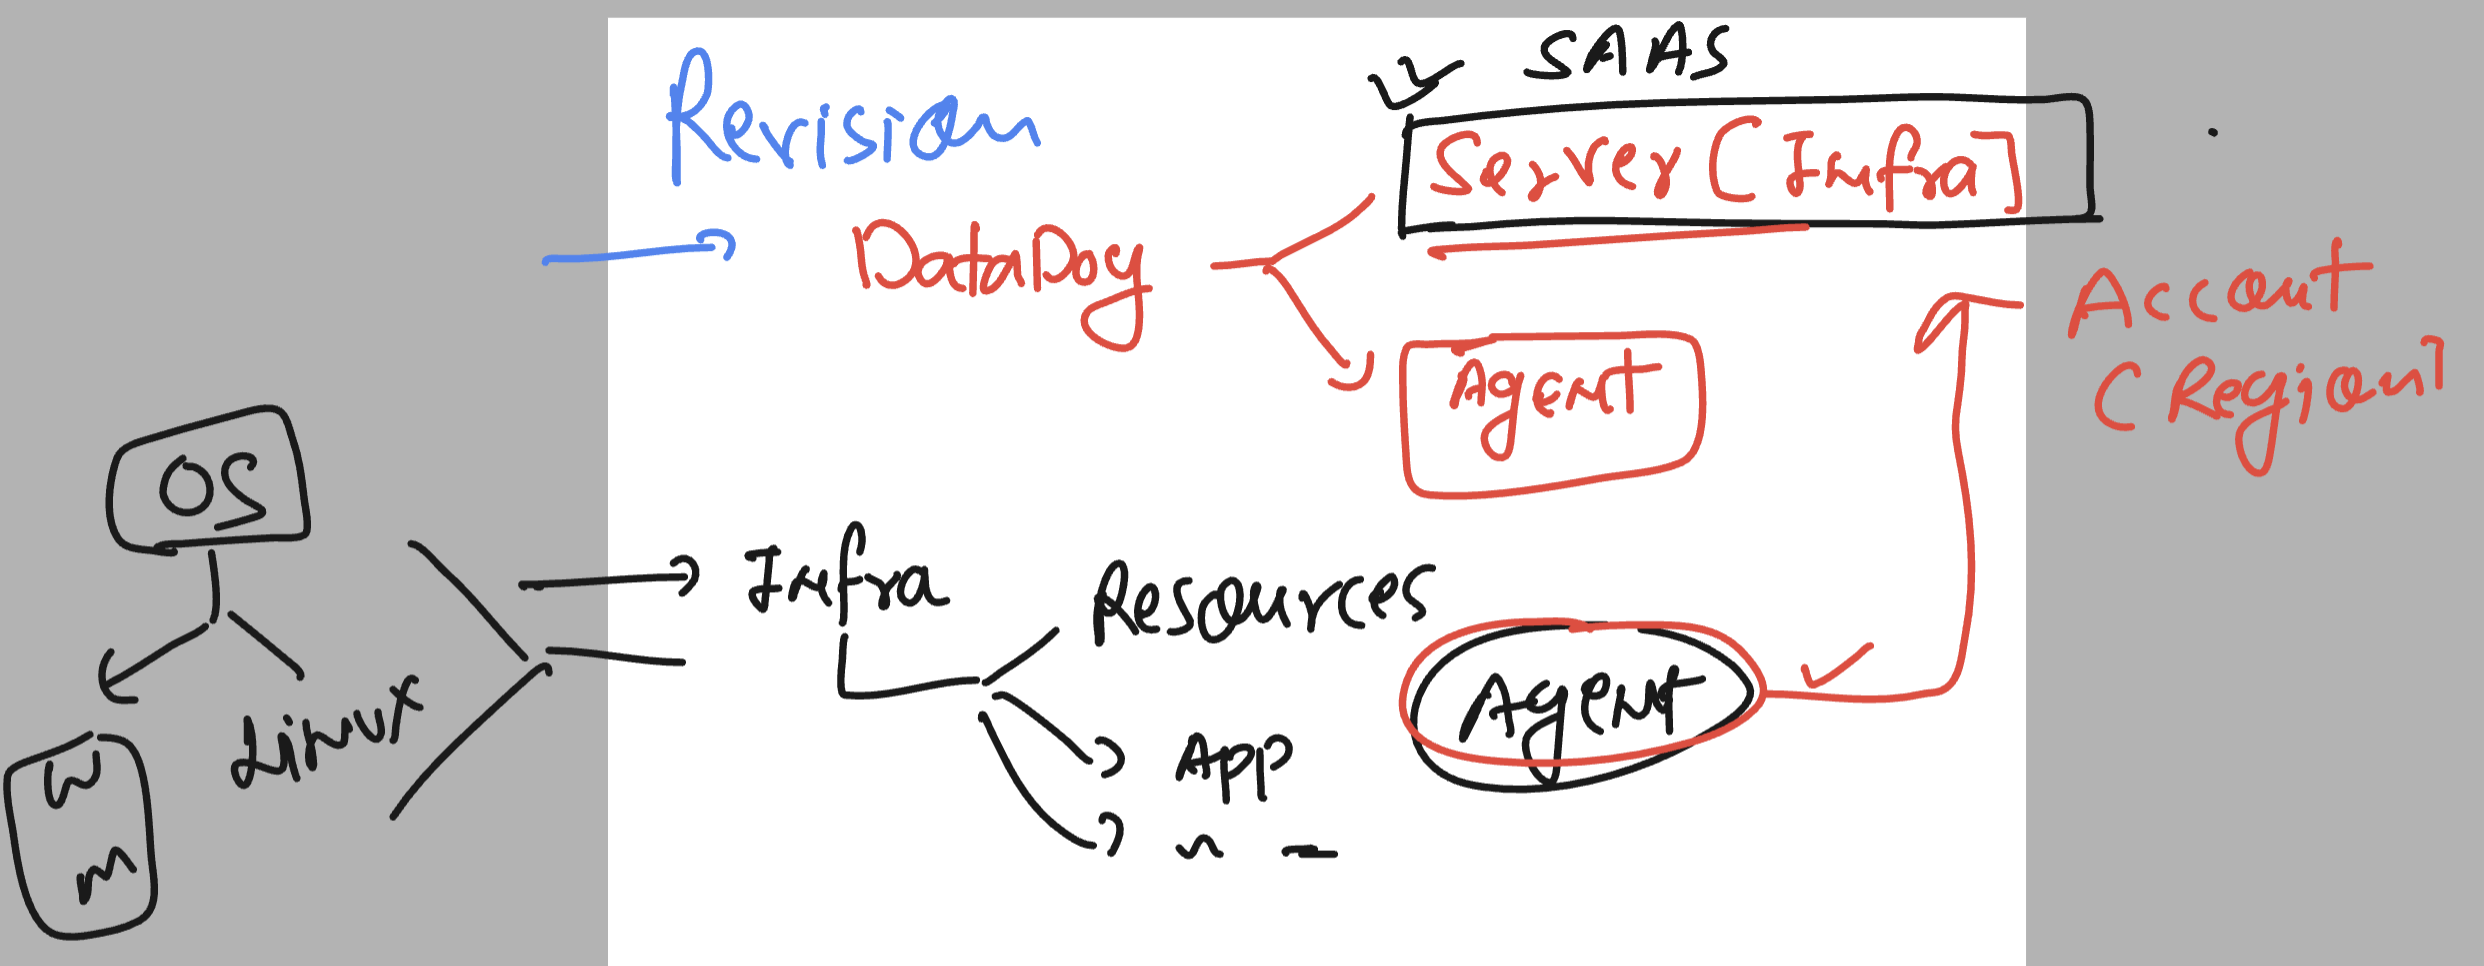 Revision
SAAS
DataDog
Server (Infra]
Agent
Account
(Region]
OS
Linux
W
M
Infra
Resources
App
Agent